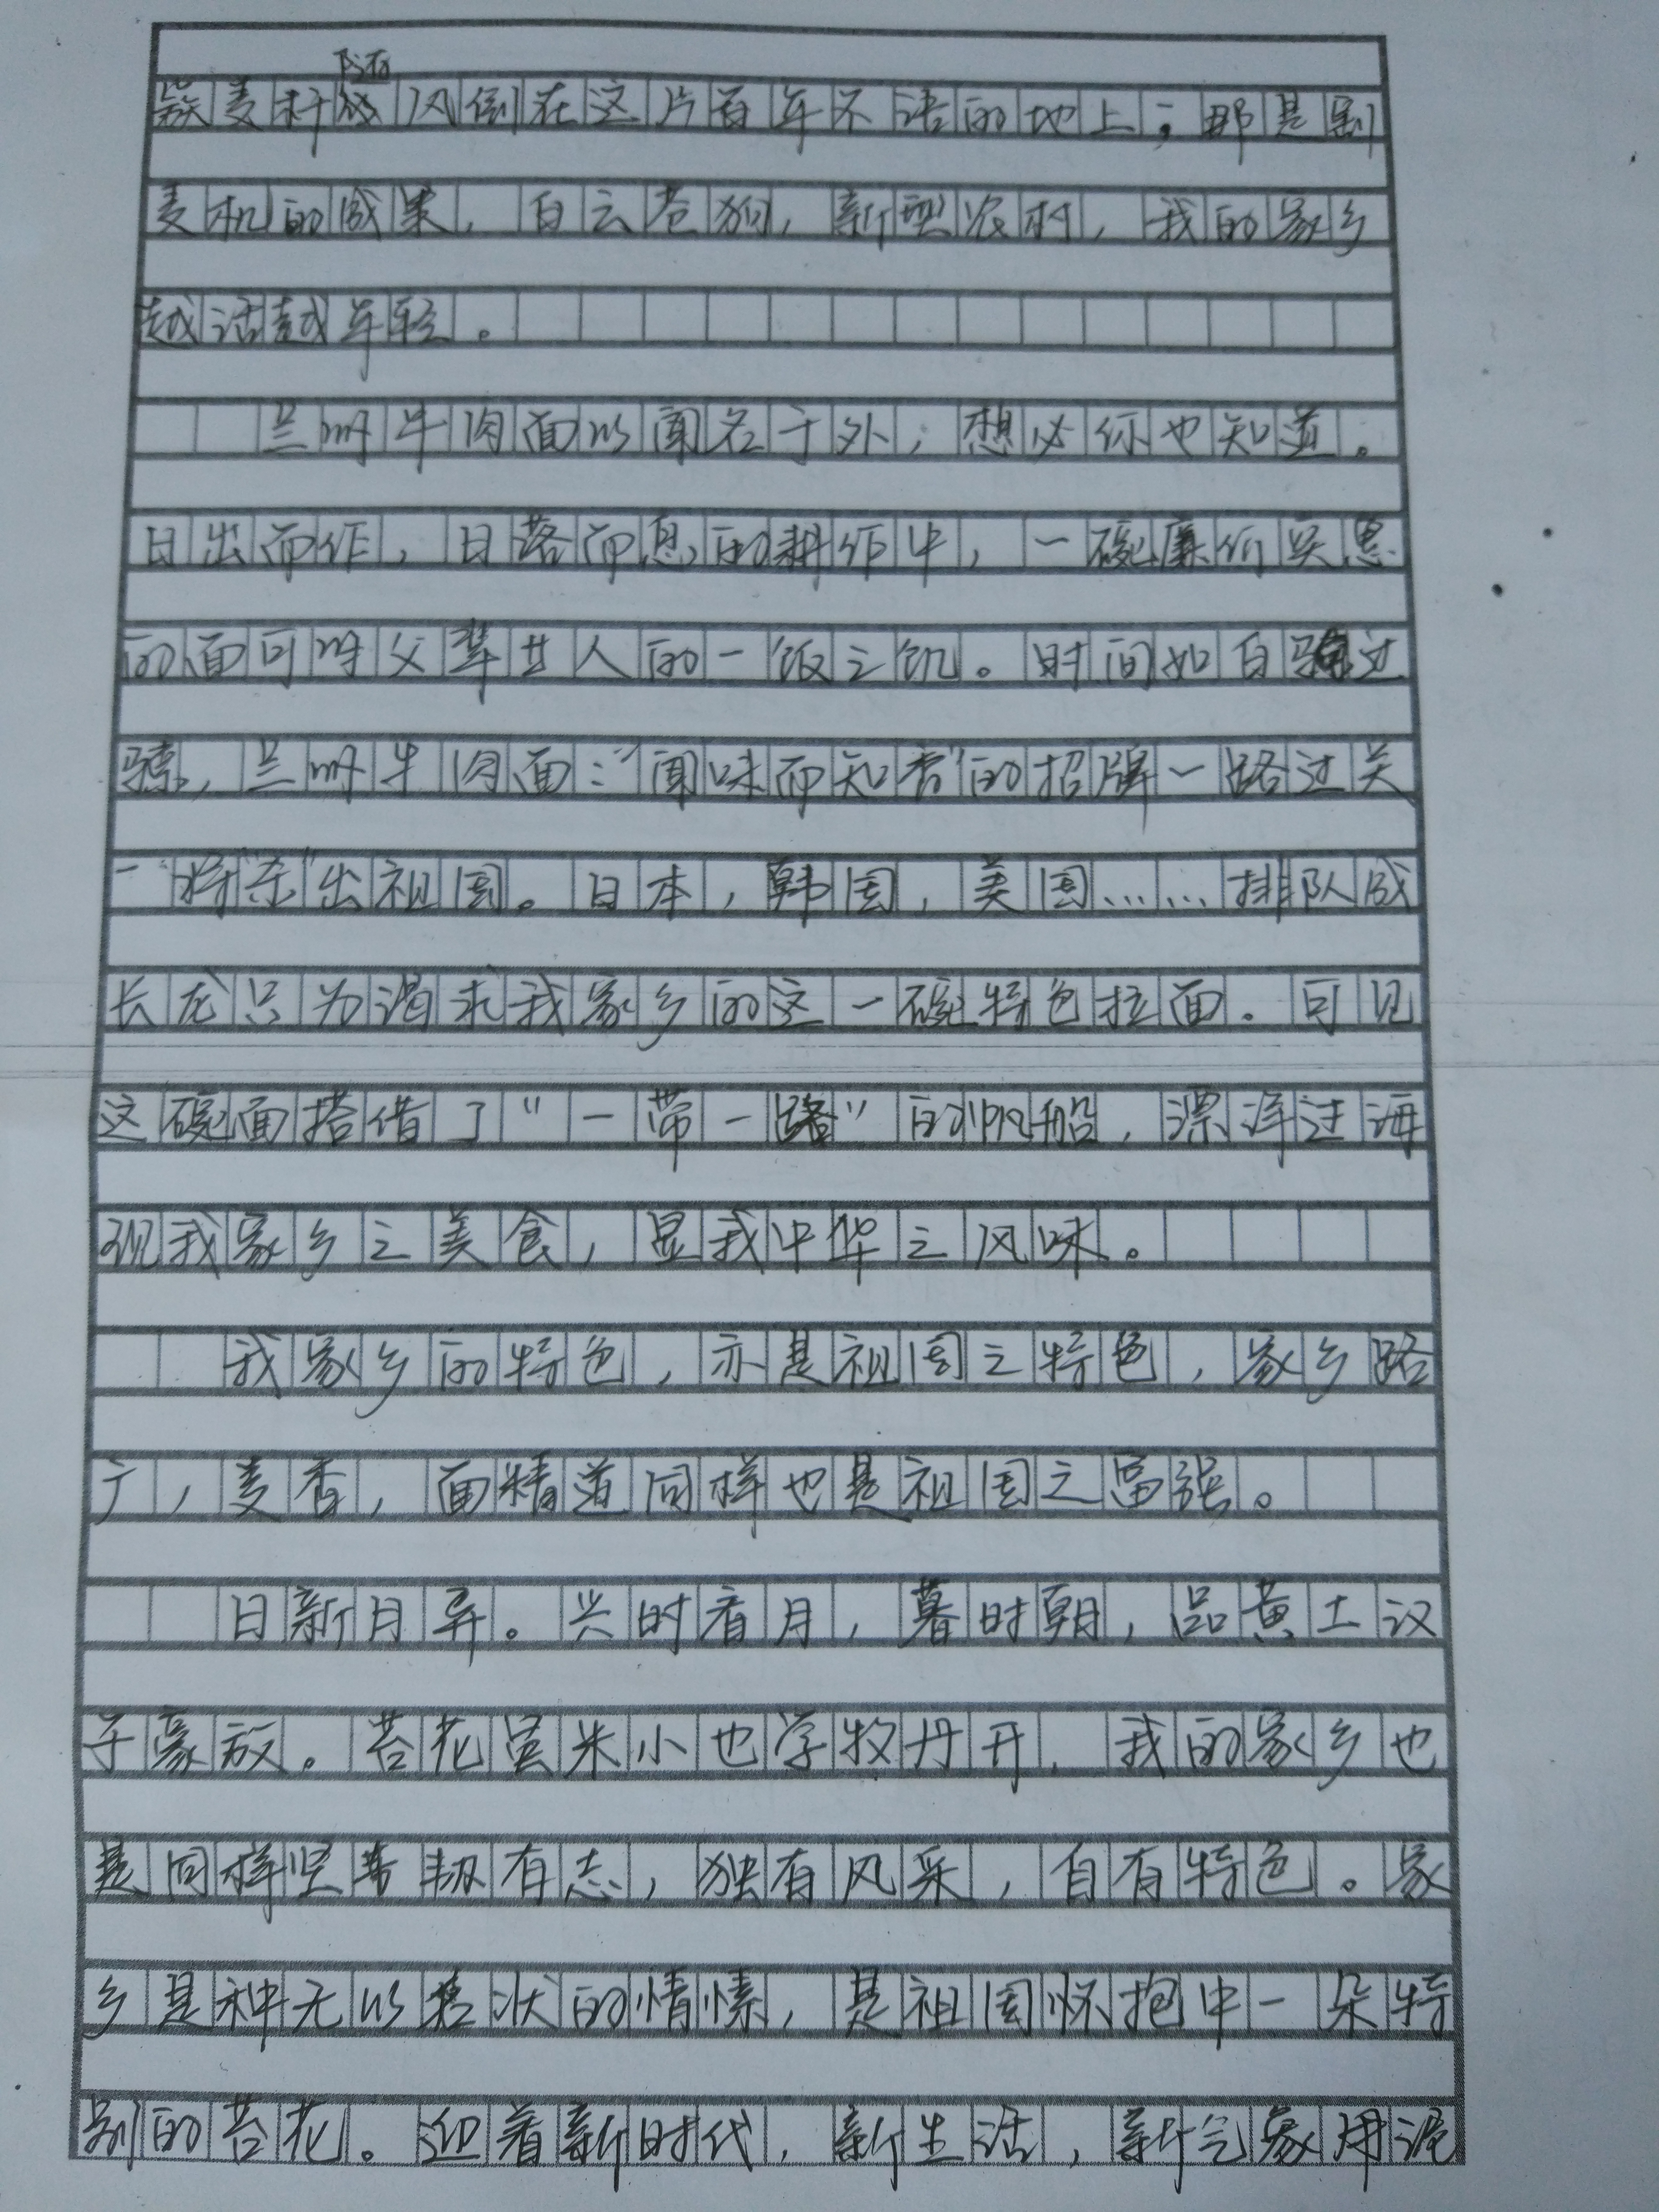 随
簇麦秆成风倒在这片百年不语的地上；那是割
麦机的成果，白云苍狗，新型农村，我的家乡
越活越年轻。
兰州牛肉面以闻名于外，想必你也知道。
日出而作，日落而息的耕作中，一碗廉价实惠
的面可时父辈廿人的一饭之饥。时间如白驹过
骧，兰州牛肉面："闻味而知香"的招牌一路过关
一"将杀"出祖国。日本，韩国，美国……排队成
长龙只为渴求我家乡的这一碗特色拉面。可见
这碗面搭借了"一带一路"的帆船，漂洋过海
观我家乡之美食，显我中华之风味。
我家乡的特色，亦是祖国之特色，家乡路
广，麦香，面精道同样也是祖国之富强。
日新月异。兴时看月，暮时朝，品黄土汉
子豪放。苔花虽米小也学牧丹开，我的家乡也
是同样坚韧有志，独有风采，自有特色。家
乡是种无以名状的情愫，是祖国怀抱中一朵特
别的苔花。迎着新时代，新生活，新气象用泥